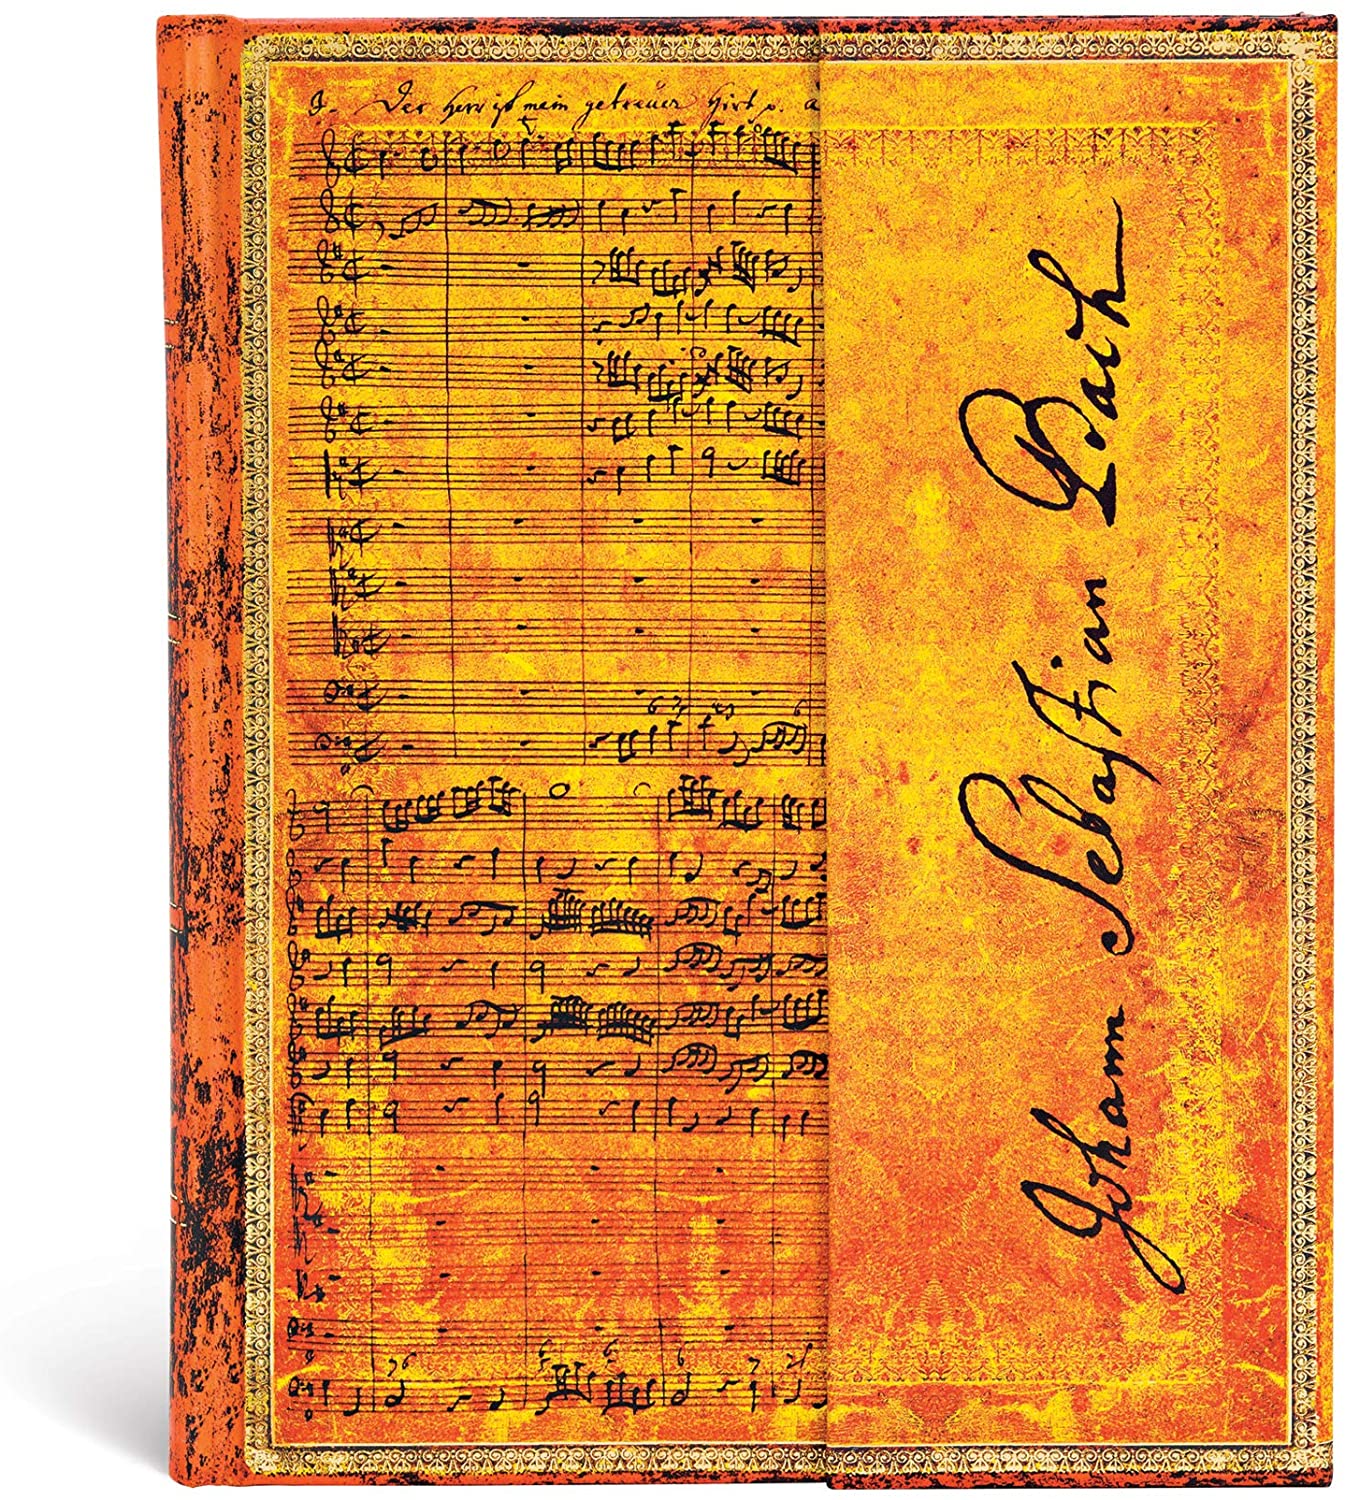 J. Der Herr ist mein getreuer Hirt p. a
Johann Sebastian Bach